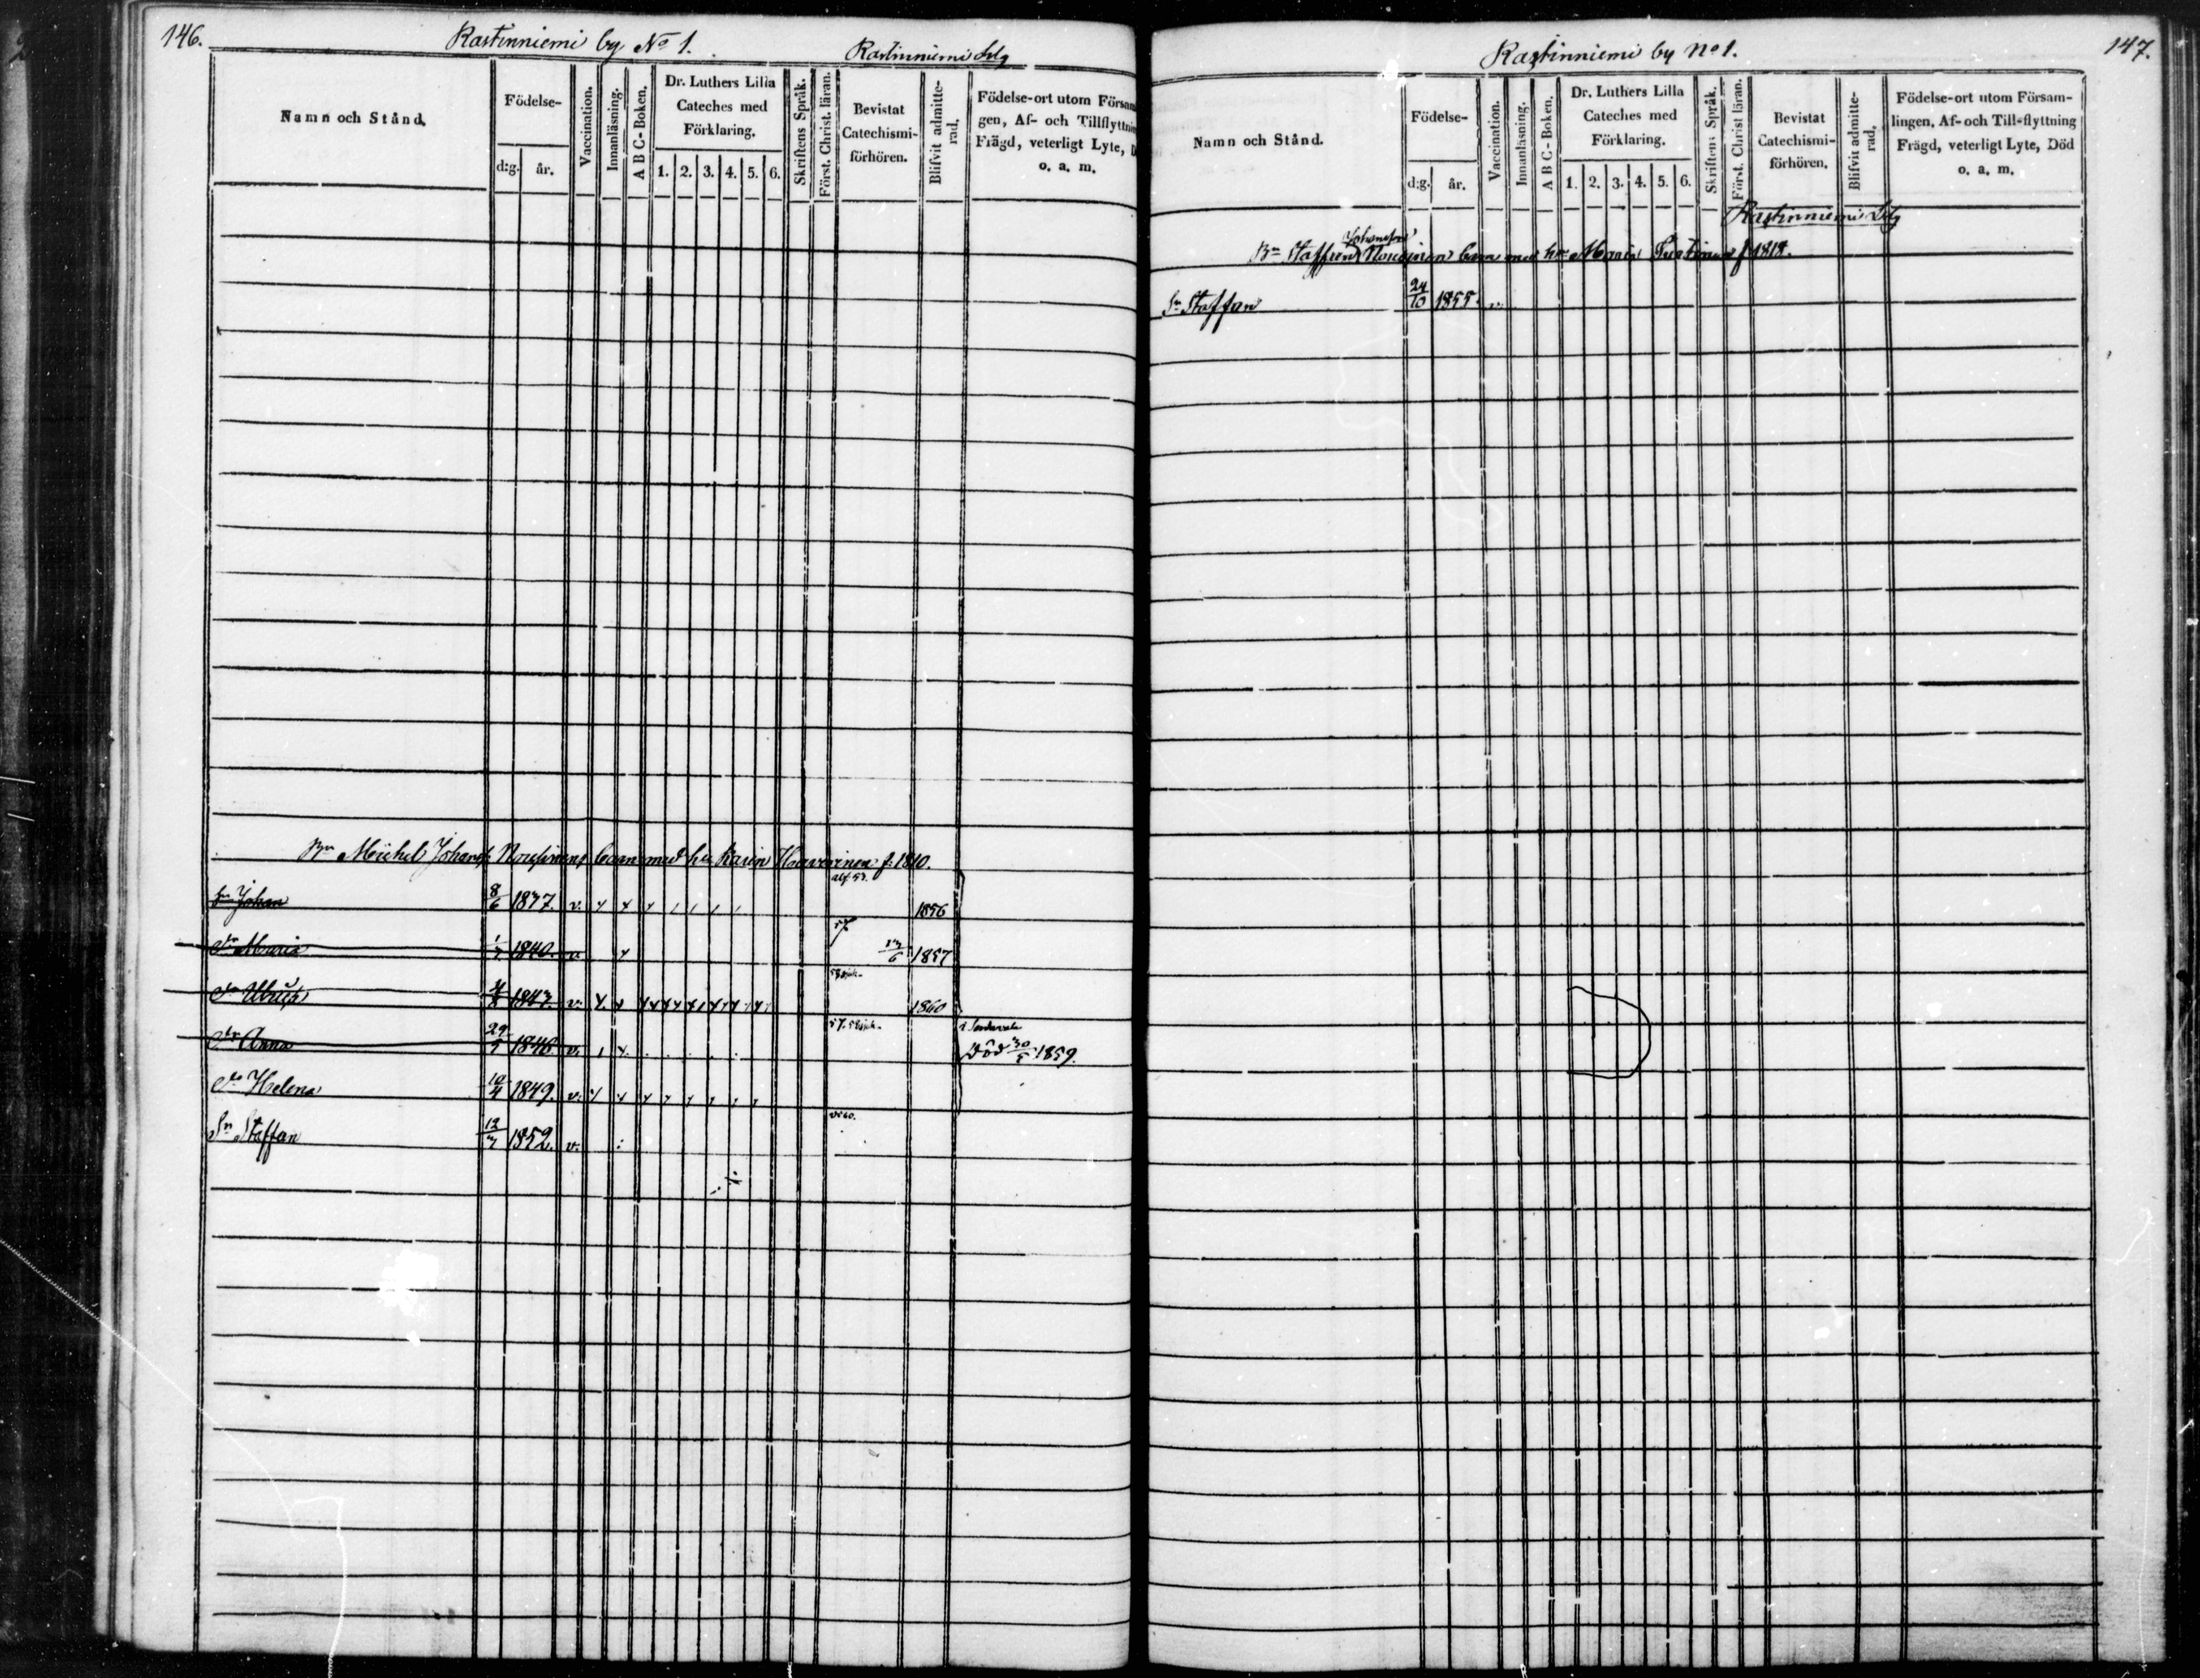 146.
Rastinniemi by No 1.
Rastinniemi
Namn och Stånd.
Födelse-
d:g. år.
Vaccination.
Innanläsning.
A B C-Boken.
Dr. Luthers Lilla
Cateches med
Förklaring.
1. 2. 3. 4. 5. 6.
Skriftens Språk.
Först. Christ. läran.
Bevistat
Catechismi-
förhören.
Blifvit admitte-
rad.
Födelse-ort utom Försam
gen, Af- och Tillflyttnin
Frägd, veterligt Lyte, D
o. a. m.
Bn Michel Johans Nousinens barn med hu Karin f. 1810.
Sn Johan 8/6 1837. v. 1856
Dr Maria 1/7 1840. v. 57 13/6 1857
Dr 1843. v. 1860
Dr Anna 29/5 1846 v. Död 30/5 1859.
Dr Helena 10/4 1849. v.
Sn Staffan 12/7 1852. v.
147.
Rastinniemi by No 1.
Namn och Stånd.
Födelse-
d:g. år.
Vaccination.
Innanläsning.
A B C-Boken.
Dr. Luthers Lilla
Cateches med
Förklaring.
1. 2. 3. 4. 5. 6.
Skriftens Språk.
Först. Christ läran.
Bevistat
Catechismi-
förhören.
Blifvit admitte-
rad.
Födelse-ort utom Försam-
lingen, Af-och Till-flyttning
Frägd, veterligt Lyte, Död
o. a. m.
Rastinniemi
Johansson
Bn Staffan Nousinen barn med hu Maria f. 1818.
Sn Staffan 24/10 1855. v.